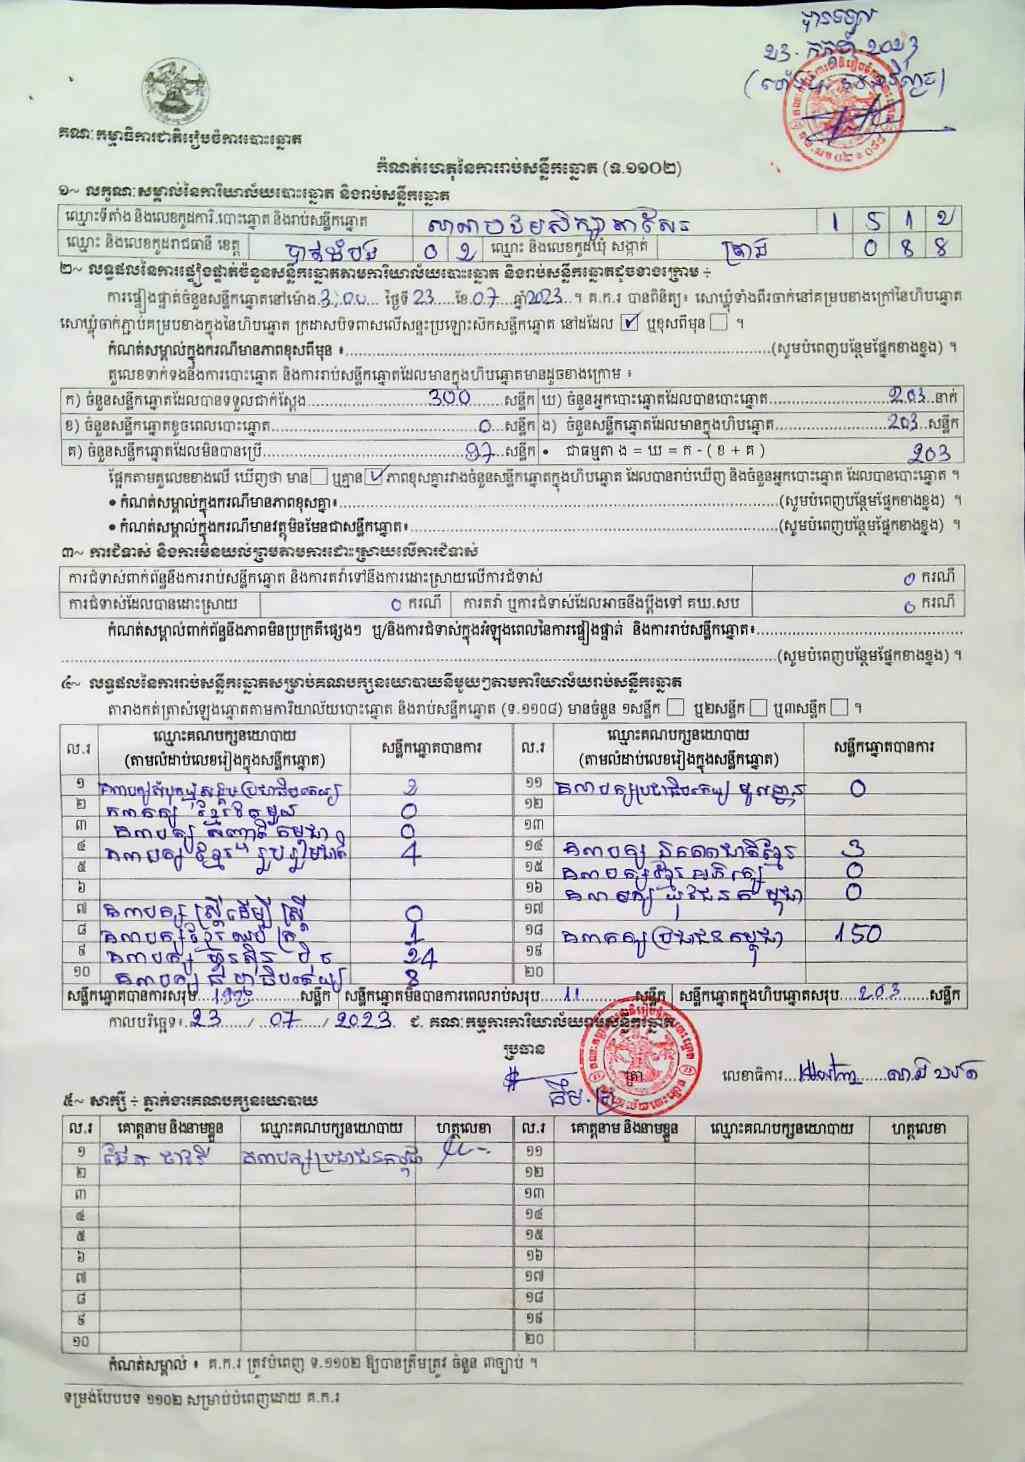 បានទទួល
23. កក្កដា 2023
គណៈកម្មាធិការជាតិរៀបចំការបោះឆ្នោត
កំណត់ហេតុនៃការរាប់សន្លឹកឆ្នោត (ទ.១១០២)
១~ លក្ខណៈសម្គាល់នៃការិយាល័យបោះឆ្នោត និងរាប់សន្លឹកឆ្នោត
ឈ្មោះទីតាំង និងលេខកូដការិ.បោះឆ្នោត និងរាប់សន្លឹកឆ្នោត 1 5 1 2
ឈ្មោះ និងលេខកូដរាជធានី ខេត្ត បាត់ដំបង 0 2 ឈ្មោះ និងលេខកូដឃុំ សង្កាត់ 0 8 8
២~ លទ្ធផលនៃការផ្ទៀងផ្ទាត់ចំនួនសន្លឹកឆ្នោតតាមការិយាល័យបោះឆ្នោត និងរាប់សន្លឹកឆ្នោតដូចខាងក្រោម ÷
ការផ្ទៀងផ្ទាត់ចំនួនសន្លឹកឆ្នោតនៅម៉ោង 3,00 ថ្ងៃទី 23 ខែ 07 ឆ្នាំ 2023 ។ គ.ក.រ បានពិនិត្យ៖ សោឃ្លុំទាំងពីរចាក់នៅគម្របខាងក្រៅនៃហិបឆ្នោត
សោឃ្លុំចាក់ភ្ជាប់គម្របខាងក្នុងនៃហិបឆ្នោត ក្រដាសបិទពាសលើសន្ទះប្រឡោះស៊កសន្លឹកឆ្នោត នៅដដែល ☑ ឬខុសពីមុន ☐ ។
កំណត់សម្គាល់ក្នុងករណីមានភាពខុសពីមុន ៖ (សូមបំពេញបន្ថែមផ្នែកខាងខ្នង) ។
តួលេខទាក់ទងនឹងការបោះឆ្នោត និងការរាប់សន្លឹកឆ្នោតដែលមានក្នុងហិបឆ្នោតមានដូចខាងក្រោម ៖
ក) ចំនួនសន្លឹកឆ្នោតដែលបានទទួលជាក់ស្តែង 300 សន្លឹក ឃ) ចំនួនអ្នកបោះឆ្នោតដែលបានបោះឆ្នោត 203 នាក់
ខ) ចំនួនសន្លឹកឆ្នោតខូចពេលបោះឆ្នោត 0 សន្លឹក ង) ចំនួនសន្លឹកឆ្នោតដែលមានក្នុងហិបឆ្នោត 203 សន្លឹក
គ) ចំនួនសន្លឹកឆ្នោតដែលមិនបានប្រើ 97 សន្លឹក • ជាធម្មតា ង = ឃ = ក - ( ខ + គ ) 203
ផ្អែកតាមតួលេខខាងលើ ឃើញថា មាន ☐ ឬគ្មាន ☑ ភាពខុសគ្នារវាងចំនួនសន្លឹកឆ្នោតក្នុងហិបឆ្នោត ដែលបានរាប់ឃើញ និងចំនួនអ្នកបោះឆ្នោត ដែលបានបោះឆ្នោត ។
• កំណត់សម្គាល់ក្នុងករណីមានភាពខុសគ្នា៖ (សូមបំពេញបន្ថែមផ្នែកខាងខ្នង) ។
• កំណត់សម្គាល់ក្នុងករណីមានវត្ថុមិនមែនជាសន្លឹកឆ្នោត៖ (សូមបំពេញបន្ថែមផ្នែកខាងខ្នង) ។
៣~ ការជំទាស់ និងការមិនយល់ព្រមតាមការដោះស្រាយលើការជំទាស់
ការជំទាស់ពាក់ព័ន្ធនឹងការរាប់សន្លឹកឆ្នោត និងការតវ៉ាទៅនឹងការដោះស្រាយលើការជំទាស់ 0 ករណី
ការជំទាស់ដែលបានដោះស្រាយ 0 ករណី ការតវ៉ា ឬការជំទាស់ដែលអាចនឹងប្តឹងទៅ គឃ.សប 0 ករណី
កំណត់សម្គាល់ពាក់ព័ន្ធនឹងភាពមិនប្រក្រតីផ្សេងៗ ឬ/និងការជំទាស់ក្នុងអំឡុងពេលនៃការផ្ទៀងផ្ទាត់ និងការរាប់សន្លឹកឆ្នោត៖
(សូមបំពេញបន្ថែមផ្នែកខាងខ្នង) ។
៤~ លទ្ធផលនៃការរាប់សន្លឹកឆ្នោតសម្រាប់គណបក្សនយោបាយនីមួយៗតាមការិយាល័យរាប់សន្លឹកឆ្នោត
តារាងកត់ត្រាសំឡេងឆ្នោតតាមការិយាល័យបោះឆ្នោត និងរាប់សន្លឹកឆ្នោត (ទ.១១០៨) មានចំនួន ១សន្លឹក ☐ ឬ២សន្លឹក ☐ ឬ៣សន្លឹក ☐ ។
ល.រ ឈ្មោះគណបក្សនយោបាយ (តាមលំដាប់លេខរៀងក្នុងសន្លឹកឆ្នោត) សន្លឹកឆ្នោតបានការ ល.រ ឈ្មោះគណបក្សនយោបាយ (តាមលំដាប់លេខរៀងក្នុងសន្លឹកឆ្នោត) សន្លឹកឆ្នោតបានការ
១ 2 ១១ 0
២ 0 ១២
៣ គណបក្ស 0 ១៣
៤ គណបក្ស ខ្មែររួបរួមជាតិ 4 ១៤ គណបក្ស 3
៥ ១៥ គណបក្សខ្មែរអភិរក្ស 0
៦ ១៦ 0
៧ គណបក្ស ស្ត្រីដើម្បីស្ត្រី 0 ១៧
៨ គណបក្សខ្មែរឈប់ក្រ 1 ១៨ គណបក្សប្រជាជនកម្ពុជា 150
៩ គណបក្ស ហ៊្វុនស៊ិនប៉ិច 24 ១៩
១០ 8 ២០
សន្លឹកឆ្នោតបានការសរុប 192 សន្លឹក សន្លឹកឆ្នោតមិនបានការពេលរាប់សរុប 11 សន្លឹក សន្លឹកឆ្នោតក្នុងហិបឆ្នោតសរុប 203 សន្លឹក
កាលបរិច្ឆេទ៖ 23 / 07 / 2023 ជ. គណៈកម្មការការិយាល័យរាប់សន្លឹកឆ្នោត
ប្រធាន
ត្រា លេខាធិការ
៥~ សាក្សី ÷ ភ្នាក់ងារគណបក្សនយោបាយ
ល.រ គោត្តនាម និងនាមខ្លួន ឈ្មោះគណបក្សនយោបាយ ហត្ថលេខា ល.រ គោត្តនាម និងនាមខ្លួន ឈ្មោះគណបក្សនយោបាយ ហត្ថលេខា
១ គណបក្សប្រជាជនកម្ពុជា ១១
២ ១២
៣ ១៣
៤ ១៤
៥ ១៥
៦ ១៦
៧ ១៧
៨ ១៨
៩ ១៩
១០ ២០
កំណត់សម្គាល់ ៖ គ.ក.រ ត្រូវបំពេញ ទ.១១០២ ឱ្យបានត្រឹមត្រូវ ចំនួន ៣ច្បាប់ ។
ទម្រង់បែបបទ ១១០២ សម្រាប់បំពេញដោយ គ.ក.រ